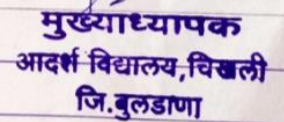 मुख्याध्यापक
आदर्श विद्यालय,चिखली
जि.बुलडाणा